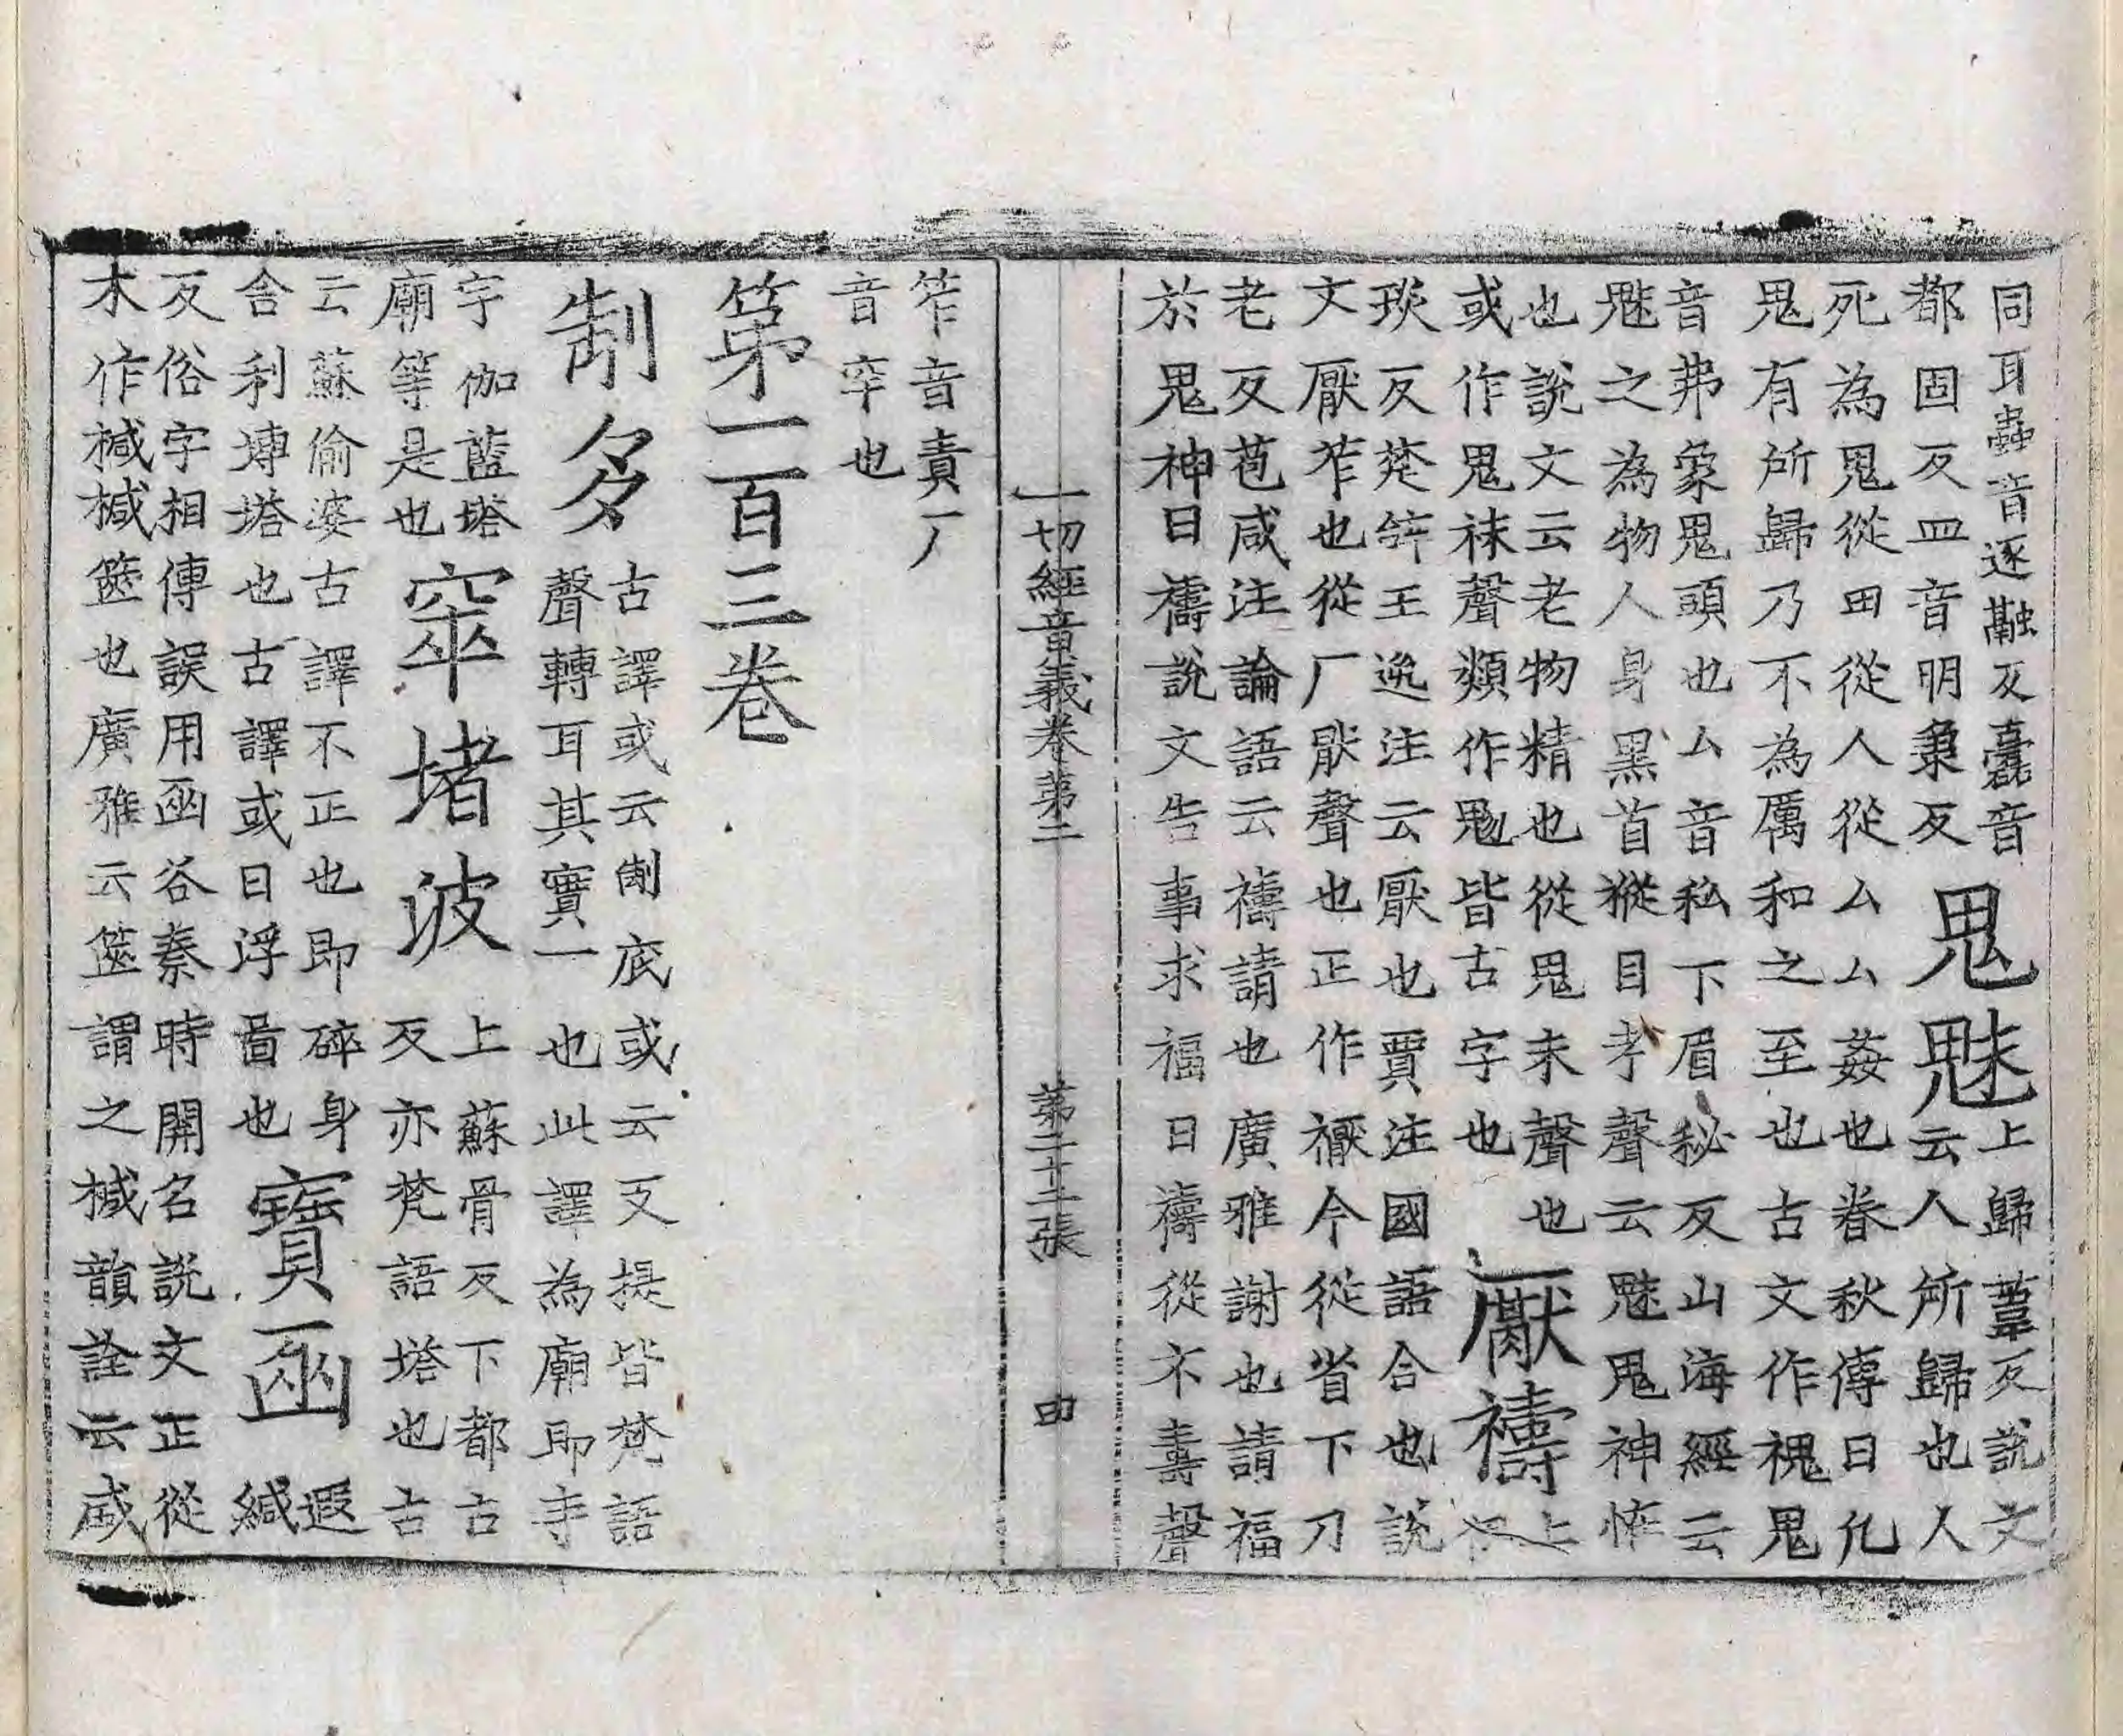 同耳蠱音逐融反蠹音
都固反皿音明秉反
鬼魅
上歸葦反說文
云人所歸也人
死為鬼從田從人從厶厶姦也春秋傳曰凡
鬼有所歸乃不為厲和之至也古文作䰟鬼
音弗象鬼頭也厶音私下眉秘反山海經云
魅之為物人身黑首縱目孝聲云魅鬼神恠
也說文云老物精也從鬼未聲也
或作鬼袜聲類作鬽皆古字也
厭禱
上
琰反楚辭王逸注云厭也賈注國語合也說
文厭笮也從厂猒聲也正作禰今從省下刀
老反苞咸注論語云禱請也廣雅謝也請福
於鬼神曰禱說文告事求福曰禱從示壽聲
一切經音義卷第二
第二十二張
田
笮音責厂
音罕也
第一百三卷
制多
古譯或云制底或云支提皆梵語
聲轉耳其實一也此譯為廟即寺
宇伽藍塔
廟等是也
窣堵波
上蘇骨反下都古
反亦梵語塔也古
云蘇偷婆古譯不正也即碎身
舍利塼塔也古譯或曰浮啚也
寶函
遐
緘
反俗字相傳誤用函谷秦時關名說文正從
木作椷椷篋也廣雅云篋謂之椷韻詮云咸